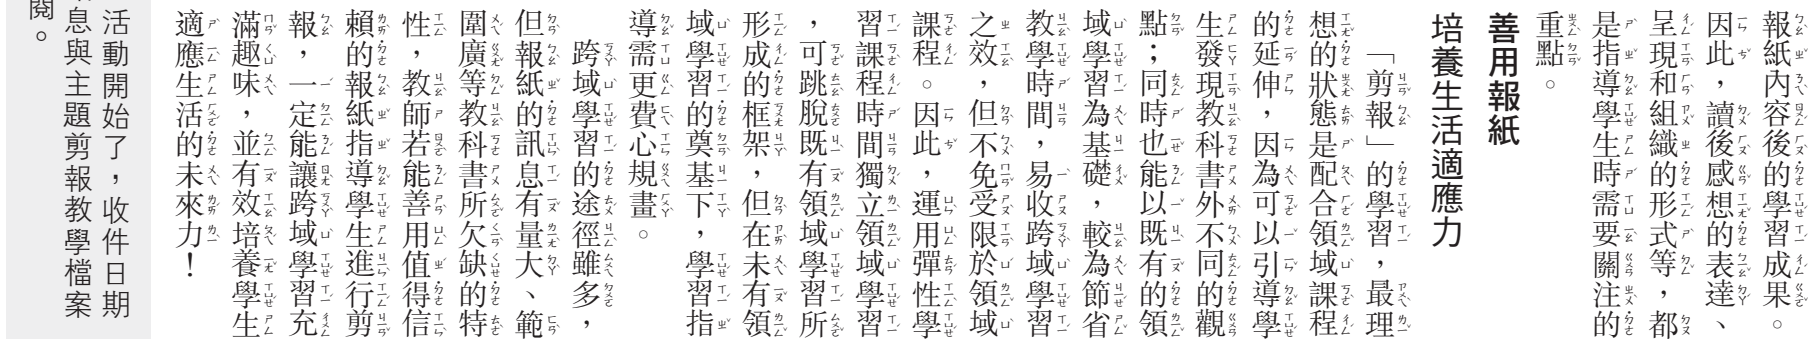 報紙內容後的學習成果。
因此，讀後感想的表達、
呈現和組織的形式等，都
是指導學生時需要關注的
重點。
善用報紙
培養生活適應力
「剪報」的學習，最理
想的狀態是配合領域課程
的延伸，因為可以引導學
生發現教科書外不同的觀
點；同時也能以既有的領
域學習為基礎，較為節省
教學時間，易收跨域學習
之效，但不免受限於領域
課程。因此，運用彈性學
習課程時間獨立領域學習
，可跳脫既有領域學習所
形成的框架，但在未有領
域學習的奠基下，學習指
導需更費心規畫。
跨域學習的途徑雖多，
但報紙的訊息有量大、範
圍廣等教科書所欠缺的特
性，教師若能善用值得信
賴的報紙指導學生進行剪
報，一定能讓跨域學習充
滿趣味，並有效培養學生
適應生活的未來力！
活動開始了，收件日期
息與主題剪報教學檔案
閱。